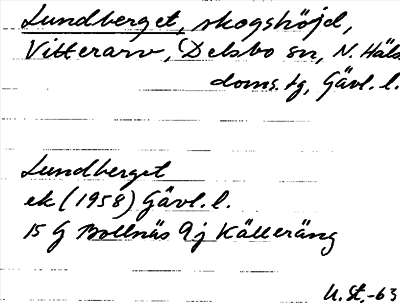 Lundberget, skogshöjd,
Vitterarv, Delsbo sn, N. Häls.
doms. tg, Gävl. l.
Lundberget
ek (1958) Gävl. l.
15 G Bollnäs 9j Källeräng
U. St. -63